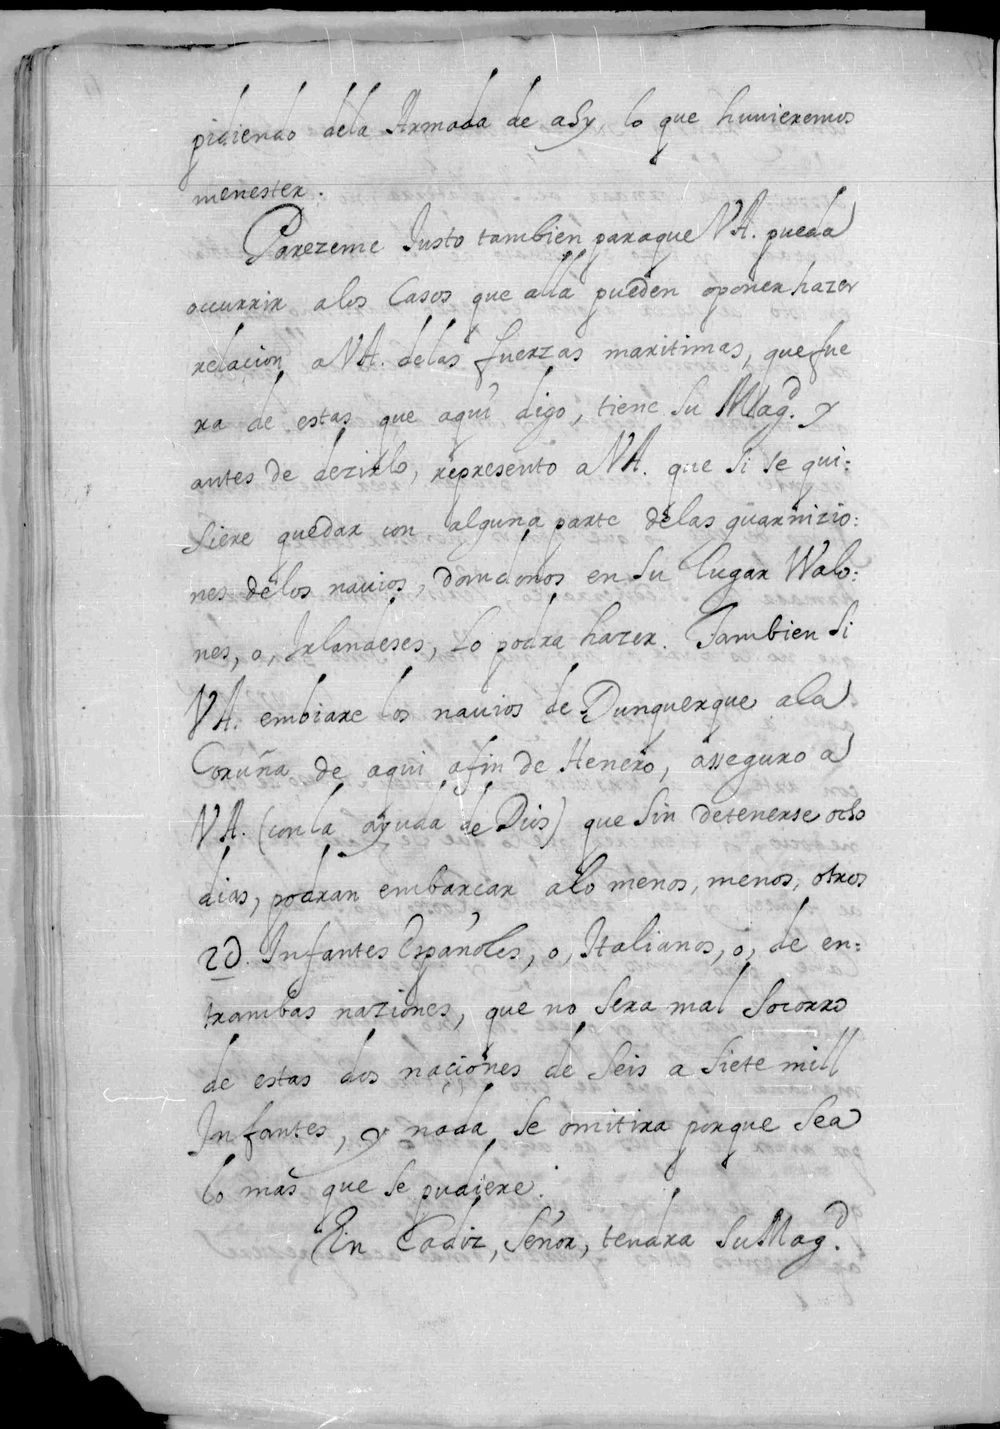 pidiendo dela Armada de aSy, lo que huuieremos
menester.
Parezeme Iusto tambien paraque VA. pueda
occurrir alos Casos que alla pueden oponer hazer
relacion aVA. delas fuerzas maritimas, que fue
ra de estas que aqui digo, tiene Su Magd. y
antes de dezirlo, represento aVA. que Si se qui:
Siere quedar con alguna parte delas guarnizio:
nes delos nauios, dandonos en Su lugar Walo:
nes, o, Irlandeses, Lo podra hazer. Tambien Si
VA. embiare los nauios de Dunquerque ala
Coruña de aqui afin de Henero, asseguro a
VA. (con la ayuda de Dios) que Sin detenerse ocho
dias, podran embarcar alo menos, menos, otros
2D. Infantes Españoles, o, Italianos, o, de en:
trambas naziones, que no Sera mal Socorro
de estas dos naçiones de Seis a Siete mill
Infantes, y nada Se omitira porque Sea
lo mas que Se pudiere.
En Cadiz, Señor, tendra SuMagd.